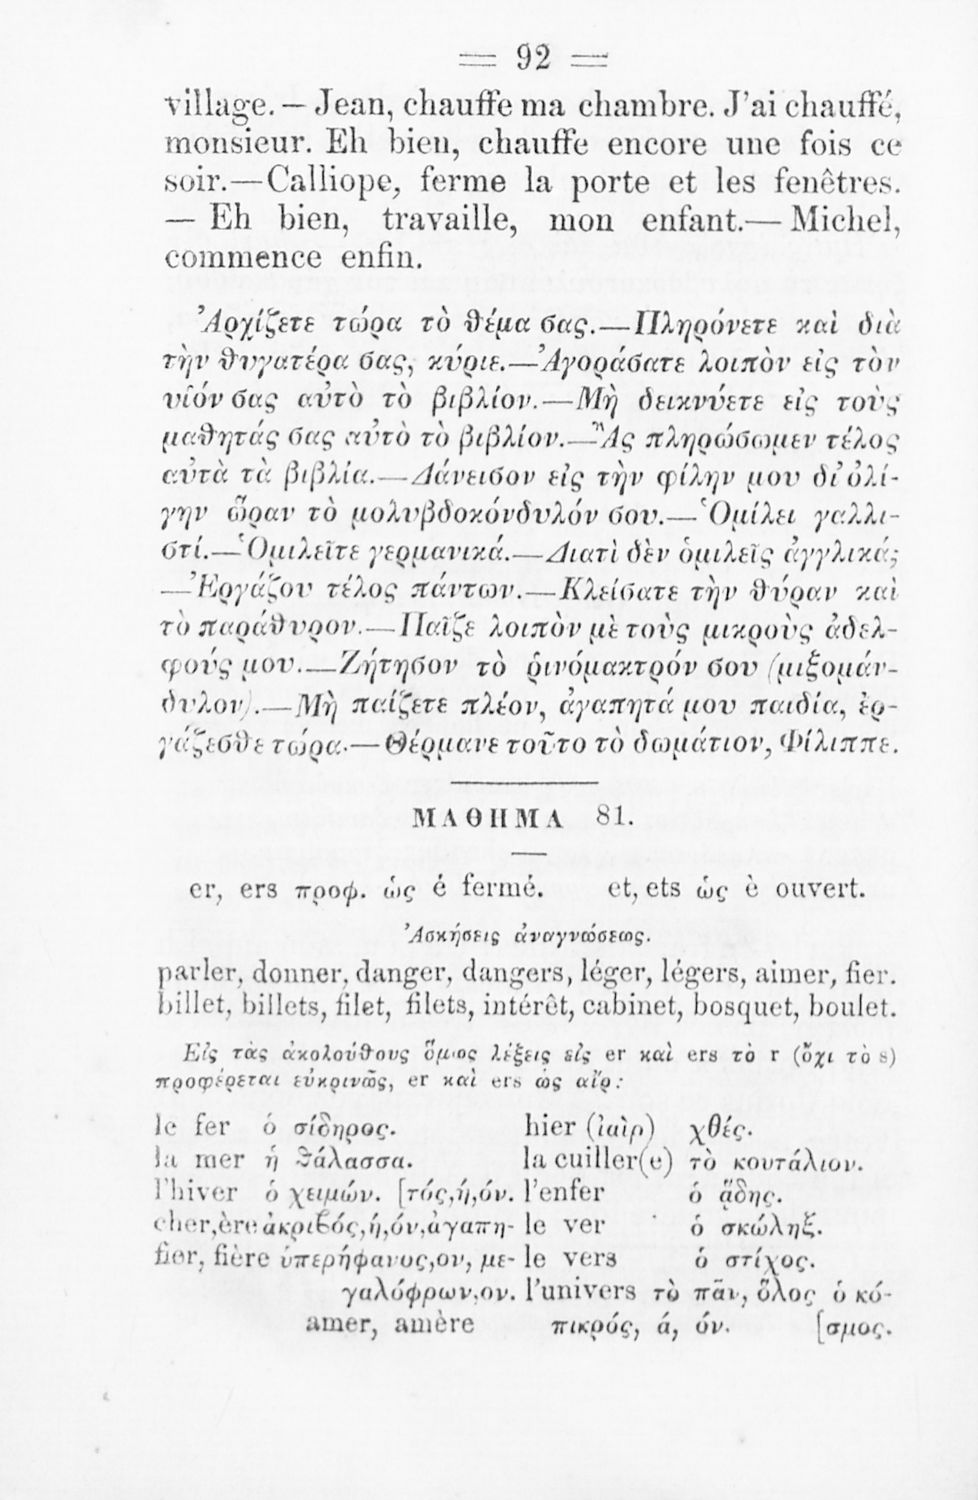 = 92 =
village. — Jean, chauffe ma chambre. J'ai chauffé,
monsieur. Eh bien, chauffe encore une fois ce
soir.—Calliope, ferme la porte et les fenêtres.
— Eh bien, travaille, mon enfant.— Michel,
commence enfin.
Ἀρχίζετε τώρα τὸ θέμα σας.—Πληρόνετε καὶ διὰ
τὴν θυγατέρα σας, κύριε.—Ἀγοράσατε λοιπὸν εἰς τὸν
υἱόν σας αὐτὸ τὸ βιβλίον.—Μὴ δεικνύετε εἰς τοὺς
μαθητάς σας αὐτὸ τὸ βιβλίον.—Ἂς πληρώσωμεν τέλος
αὐτὰ τὰ βιβλία.—Δάνεισον εἰς τὴν φίλην μου δι' ὀλί-
γην ὥραν τὸ μολυβδοκόνδυλόν σου.—Ὁμίλει γαλλι-
στί.—Ὁμιλεῖτε γερμανικά.—Διατὶ δὲν ὁμιλεῖς ἀγγλικά;
—Ἐργάζου τέλος πάντων.—Κλείσατε τὴν θύραν καὶ
τὸ παράθυρον.—Παῖζε λοιπὸν μὲ τοὺς μικροὺς ἀδελ-
φούς μου.—Ζήτησον τὸ ῥινόμακτρόν σου (μιξομάν-
δυλον).—Μὴ παίζετε πλέον, ἀγαπητά μου παιδία, ἐρ-
γάζεσθε τώρα.—Θέρμανε τοῦτο τὸ δωμάτιον, Φίλιππε.
ΜΑΘΗΜΑ 81.
er, ers προφ. ὡς é fermé. et, ets ὡς è ouvert.
Ἀσκήσεις ἀναγνώσεως.
parler, donner, danger, dangers, léger, légers, aimer, fier.
billet, billets, filet, filets, intérêt, cabinet, bosquet, boulet.
Εἰς τὰς ἀκολούθους ὅμως λέξεις εἰς er καὶ ers τὸ r (ὄχι τὸ s)
προφέρεται εὐκρινῶς, er καὶ ers ὡς αἴρ:
le fer ὁ σίδηρος. hier (ἰαὶρ) χθές.
la mer ἡ θάλασσα. la cuiller(e) τὸ κουτάλιον.
l'hiver ὁ χειμών. [τός,ή,όν. l'enfer ὁ ᾅδης.
cher,ère ἀκριβός,ή,όν,ἀγαπη- le ver ὁ σκώληξ.
fier, fière ὑπερήφανος,ον, με- le vers ὁ στίχος.
γαλόφρων,ον. l'univers τὸ πᾶν, ὅλος ὁ κό-
amer, amère πικρός, ά, όν. [σμος.